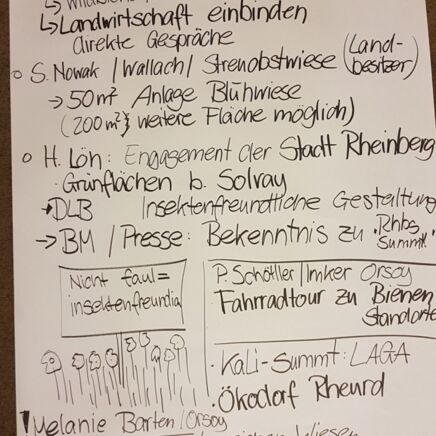 ↳Landwirtschaft einbinden
direkte Gespräche
○ S. Nowak /Wallach/ Streuobstwiese (Land-
besitzer)
→ 50m² Anlage Blühwiese
(200m²} weitere Fläche möglich)
○ H. Lön: Engagement der Stadt Rheinberg
· Grünflächen b. Solvay
→DLB Insektenfreundliche Gestaltung
→ BM / Presse: Bekenntnis zu "Rhbg
Summt"
Nicht faul =
insektenfreundlich
P. Schöttler / Imker Orsoy
Fahrradtour zu Bienen
Standorte
·Kali-Summt: LAGA
·Ökodorf Rheurd
! Melanie Barten / Orsoy
Wiesen